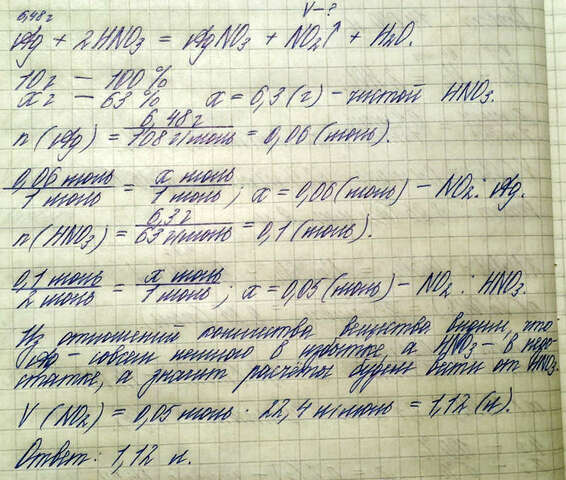 6,48 г V - ?
Ag + 2HNO₃ = AgNO₃ + NO₂↑ + H₂O.
10 г — 100 %
x г — 63 % x = 6,3 (г) - чистой HNO₃.
n (Ag) = 6,48 г / 108 г/моль = 0,06 (моль).
0,06 моль / 1 моль = x моль / 1 моль ; x = 0,06 (моль) - NO₂ : Ag.
n (HNO₃) = 6,3 г / 63 г/моль = 0,1 (моль).
0,1 моль / 2 моль = x моль / 1 моль ; x = 0,05 (моль) - NO₂ : HNO₃.
Из отношений количества вещества видим, что
Ag - совсем немного в избытке, а HNO₃ - в недо-
статке, а значит расчёты будем вести от HNO₃.
V (NO₂) = 0,05 моль · 22,4 л/моль = 1,12 (л).
Ответ: 1,12 л.